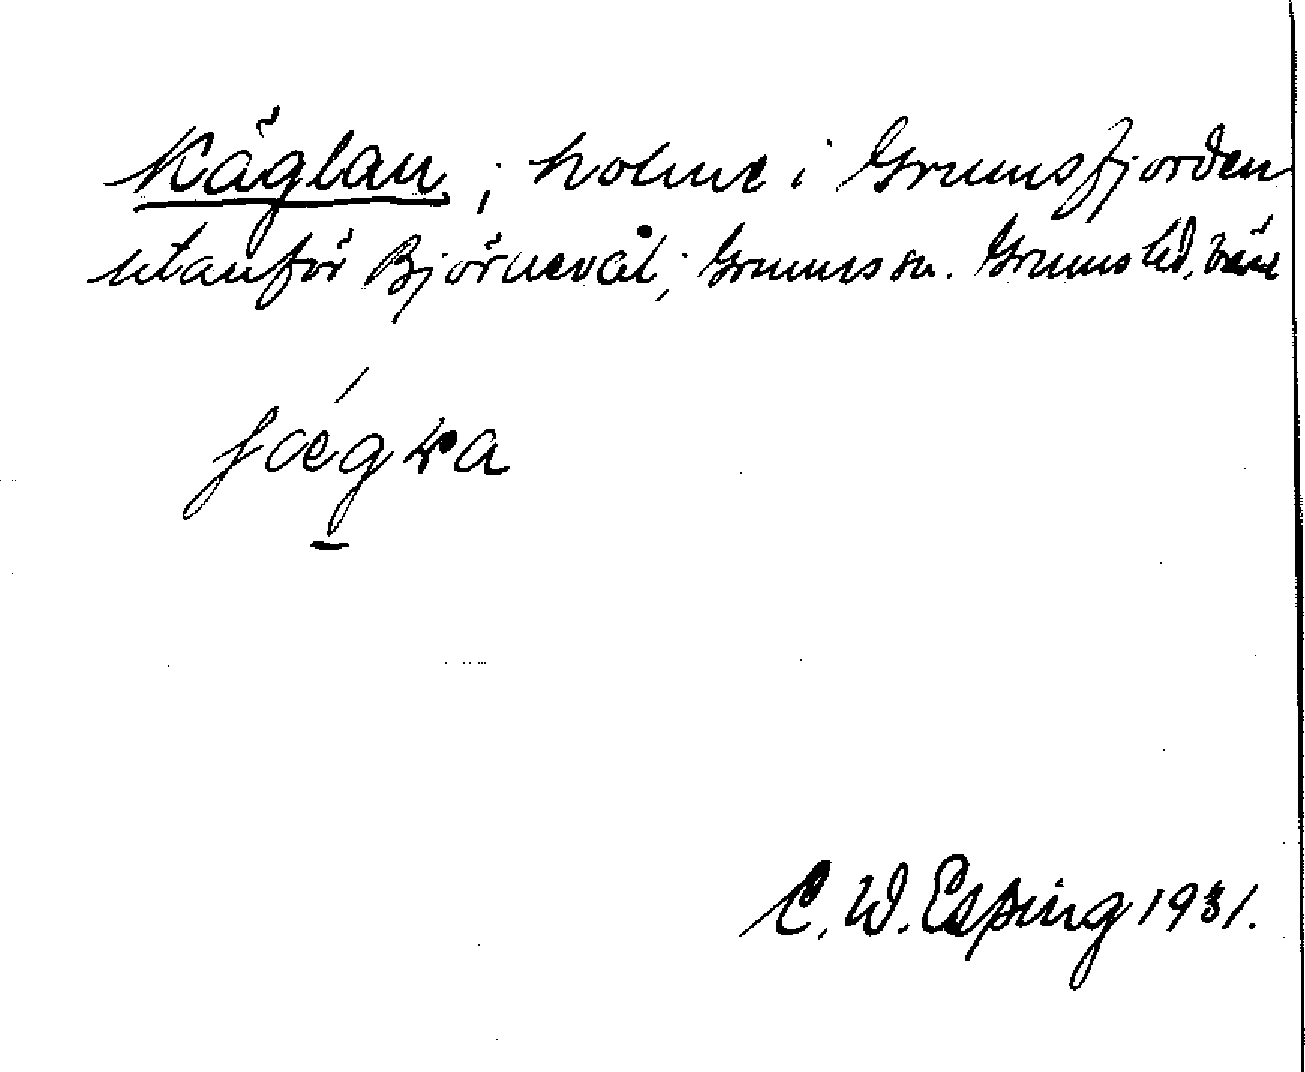 Käglan; holme i Grumsfjorden
utanför Björnevål; Grums sn. Grums hd,
C. W. Esping 1931.